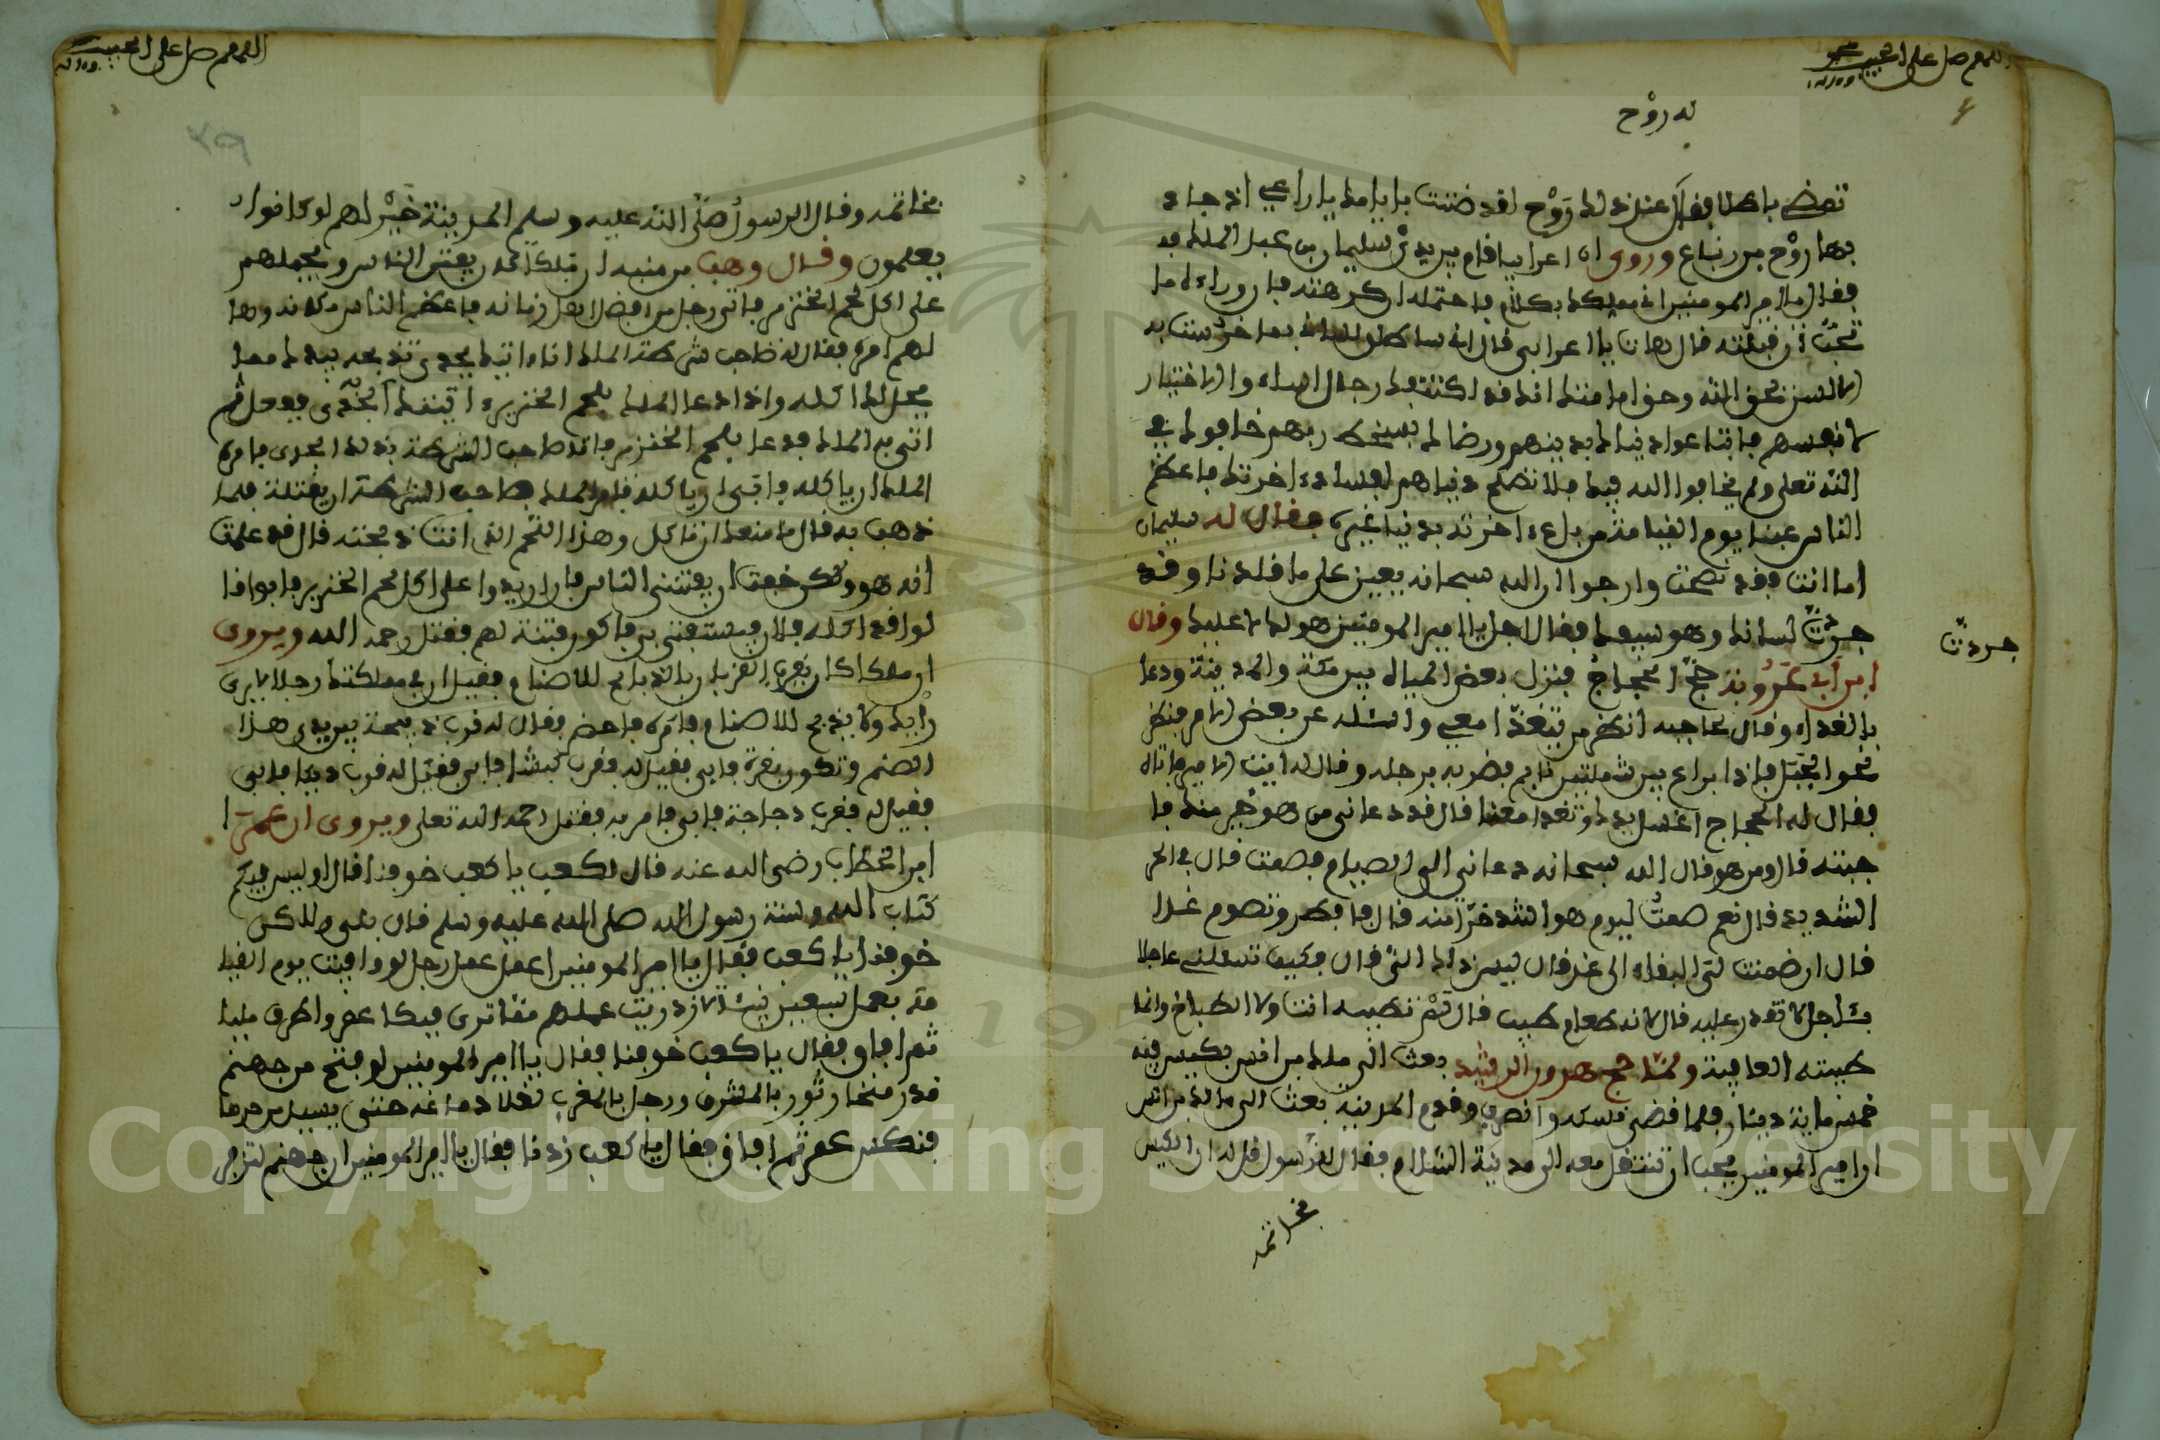 اللهم صل على الحبيب محمد واله
له روح
تمضي باطلا فقال عند ذلك روح لقد ضننت بايامك يا راعي اذ جاد
بها روح بن زنباع وروى ان اعرابيا قام بين يدي سليمان بن عبد الملك
فقال يا امير المومنين اني مكلمك بكلام فاحتمله ان كرهته فان وراءه ما
تحب ان قبلته قال هات يا اعرابي قال اني ساطلق لساني بما خرست به
الالسن بحق الله وحق امامتك انك قد اكتنفك رجال اساءوا الاختيار
لانفسهم فابتاعوا دنياك بدينهم ورضاك بسخط ربهم خافوك في
الله تعلى ولم يخافوا الله فيك فلا تصلح دنياهم بفساد اخرتك فاعظم
الناس غبنا يوم القيامة من باع اخرته بدنيا غيره فقال له سليمان
اما انت فقد نصحت وارجوا ان الله سبحانه يعين على ما قلدنا وقد
جردت لسانك وهو سيفك فقال اجل يا امير المومنين هو لك لا عليك وقال
جردت
ابن ابي عروبة حج الحجاج فنزل بعض المياه بين مكة والمدينة ودعا
بالغداء وقال لحاجبه انظر من يتغدا معي واسئله عن بعض الامر فنظر
نحو الجبل فاذا براع بين شملتين نايم فضربه برجله وقال له ايت الامير فاتاه
فقال له الحجاج اغسل يدك وتغدا معنا قال قد دعاني من هو خير منك فا
جبته قال ومن هو قال الله سبحانه دعاني الى الصيام فصمت قال في الحر
الشديد قال نعم صمت ليوم هو اشد حرا منه قال فافطر وتصوم غدا
قال ان ضمنت لي البقاء الى غد قال ليس ذلك الي قال فكيف تسئلني عاجلا
بئاجل لا تقدر عليه قال لانه طعام طيب قال لم تطيبه انت ولا الطباخ وانما
طيبته العافية ولما حج هرون الرشيد بعث الى ملك بن انس بكيس فيه
خمس ماية دينار فلما قضى نسكه وانصرف وقدم المدينة بعث الى مالك بن انس
ان امير المومنين يحب ان تنتقل معه الى مدينة السلام فقال للرسول قل له ان الكيس
بخاتمه
اللهم صل على الحبيب واله
٣٩
بخاتمه وقال الرسول صلى الله عليه وسلم المدينة خير لهم لو كانوا
يعلمون وقال وهب بن منبه ان ملكا كان يفتن الناس ويحملهم
على اكل لحم الخنزير فاتي رجل من افضل اهل زمانه فاعظم الناس مكانه وها
لهم امره فقال له صاحب شرطة الملك انا ءاتيك بجدي تذبحه بيدك مما
يحل لك اكله واذا دعا الملك بلحم الخنزير اتيتك بالجدي ففعل ثم
اتي به الملك فدعا بلحم الخنزير فاتاه صاحب الشرطة بذلك الجدي فامره
الملك ان ياكله فابى ان ياكله فامر الملك صاحب الشرطة ان يقتله فلما
ذهب به قال ما منعك ان تاكل وهذا اللحم الذي انت ذبحته قال قد علمت
انه هو ولكن خفت ان يفتتن الناس فان اريدوا على اكل لحم الخنزير فابوا قا
لوا قد اكله فلان فيستفتني بي فاكون فتنة لهم فقتل رحمه الله ويروى
ان ملكا كان يغري القربان بالذبايح للاصنام فقيل ان في مملكتك رجلا لا يرى
رايك ولا يذبح للاصنام فامره فاحضر فقال له قرب ذبيحة بين يدي هذا
الصنم وتكون بقرة فابى فقيل له فقرب كبشا فابى فقيل له قرب ديكا فابى
فقيل له فقرب دجاجة فابى فامر به فقتل رحمه الله تعلى ويروى ان عمر ا
ابن الخطاب رضي الله عنه قال لكعب يا كعب خوفنا قال او ليس فيكم
كتاب الله وسنة رسول الله صلى الله عليه وسلم قال بلى ولكن
خوفنا يا كعب فقال يا امير المومنين اعمل عمل رجل لو وافيت يوم القيا
مة بعمل سبعين نبيئا لازدريت عملهم مما ترى فبكا عمر واطرق مليا
ثم افاق فقال يا كعب خوفنا فقال يا امير المومنين لو فتح من جهنم
قدر منخار ثور بالمشرق ورجل بالمغرب لغلا دماغه حتى يسيل من حرها
فنكس عمر ثم افاق فقال يا كعب زدنا فقال يا امير المومنين ان جهنم لتزفر
Copyright © King Saud University